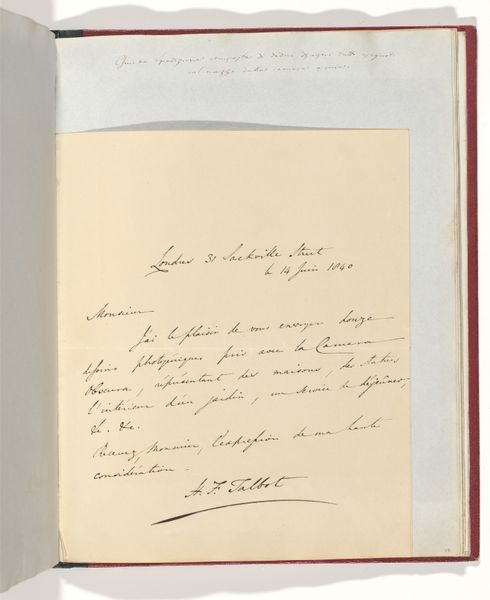 Londres 31 Sackville Street
le 14 Juin 1840
Monsieur
J'ai le plaisir de vous envoyer douze
dessins photogéniques pris avec la Camera
Obscura, représentant des maisons, des statues
l'intérieur d'un jardin, un service de déjeûner,
&c. &c.
Recevez, Monsieur, l'expression de ma haute
considération.
H. F. Talbot